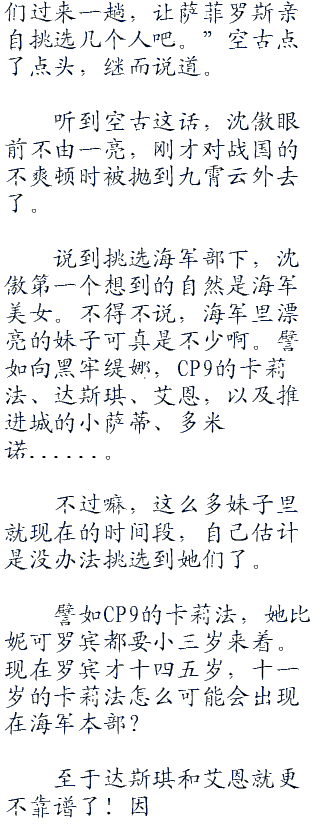 们过来一趟，让萨菲罗斯亲
自挑选几个人吧。”空古点
了点头，继而说道。
听到空古这话，沈傲眼
前不由一亮，刚才对战国的
不爽顿时被抛到九霄云外去
了。
说到挑选海军部下，沈
傲第一个想到的自然是海军
美女。不得不说，海军里漂
亮的妹子可真是不少啊。譬
如向黑牢缇娜，CP9的卡莉
法、达斯琪、艾恩，以及推
进城的小萨蒂、多米
诺......。
不过嘛，这么多妹子里
就现在的时间段，自己估计
是没办法挑选到她们了。
譬如CP9的卡莉法，她比
妮可罗宾都要小三岁来着。
现在罗宾才十四五岁，十一
岁的卡莉法怎么可能会出现
在海军本部？
至于达斯琪和艾恩就更
不靠谱了！因